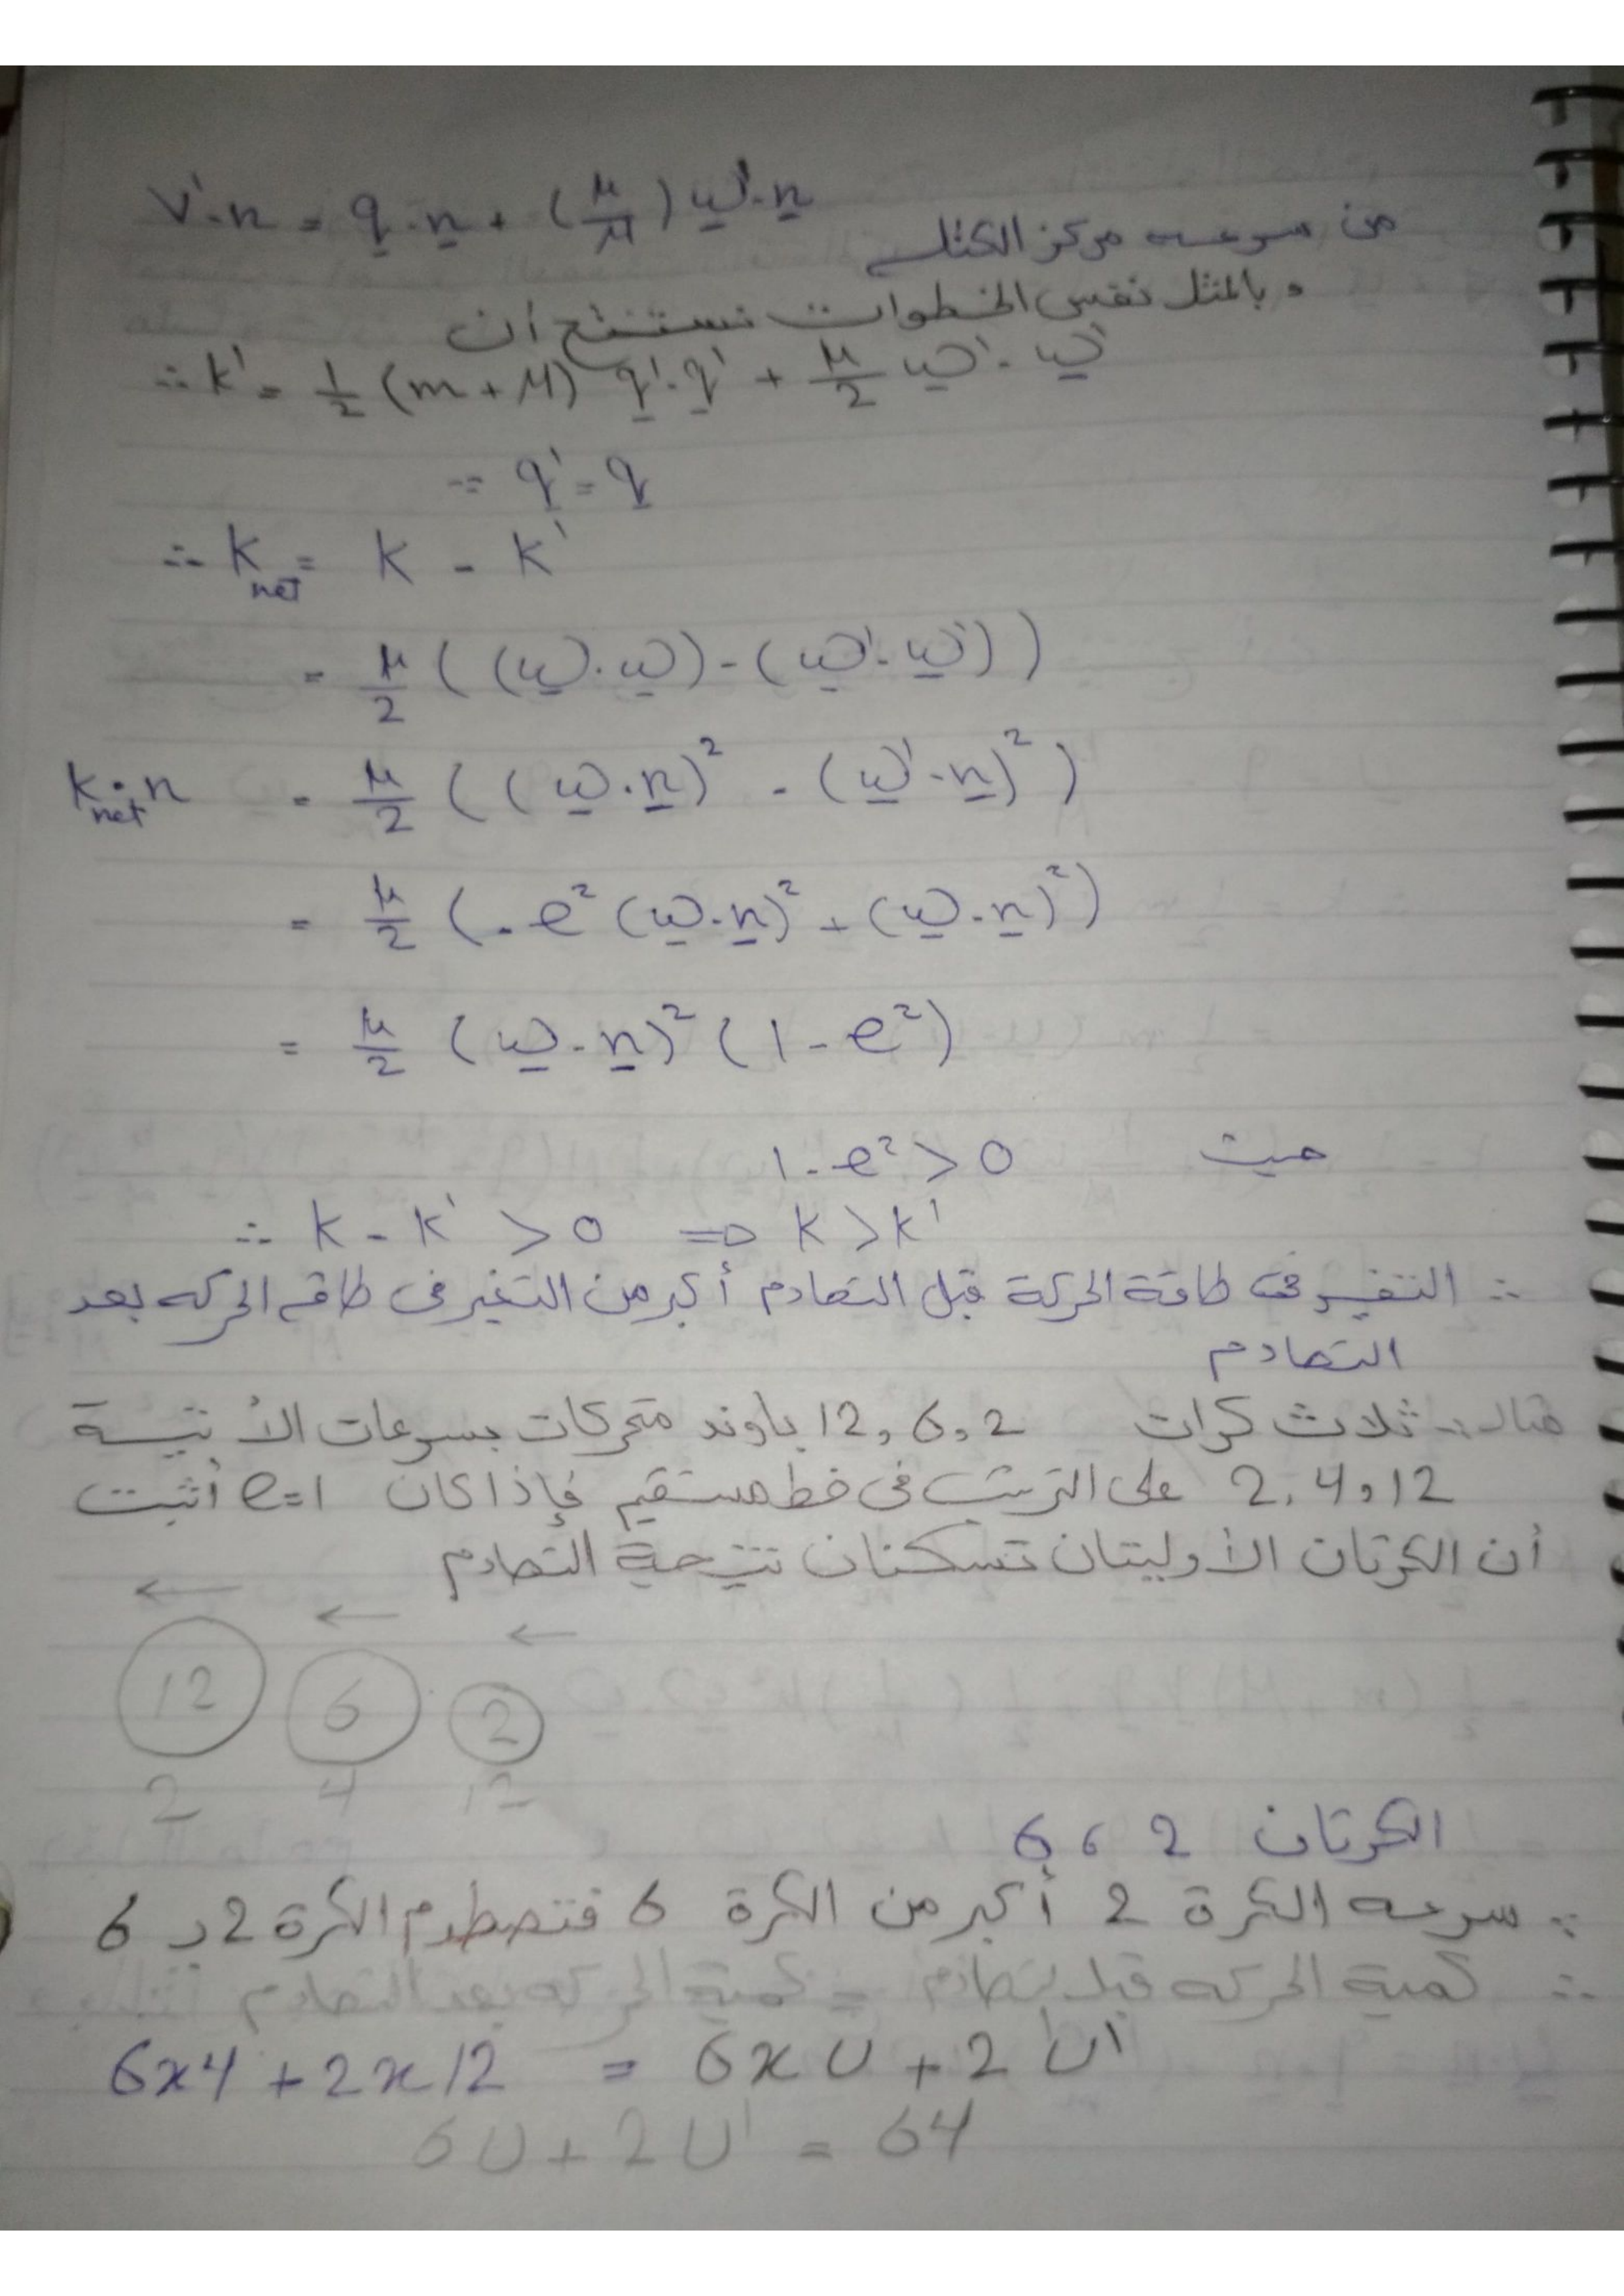 V'·n = q·n + (μ/M) ω'·n
من سرعه مركز الكتله
وبالمثل نفس الخطوات نستنتج أن
∴ k' = 1/2 (m + M) q'·q' + μ/2 ω'·ω'
∵ q' = q
∴ K net = K - K'
= μ/2 ((ω·ω) - (ω'·ω'))
K net · n = μ/2 ((ω·n)² - (ω'·n)²)
= μ/2 (- e² (ω·n)² + (ω·n)²)
= μ/2 (ω·n)² (1 - e²)
حيث 1 - e² > 0
∴ k - k' > 0 ⇒ k > k'
∴ التغير فى طاقة الحركة قبل التصادم أكبر من التغير فى طاقه الحركه بعد
التصادم
مثال:- ثلاث كرات 2, 6, 12 باوند متحركات بسرعات الأتية
2, 4, 12 على الترتيب فى خط مستقيم فإذا كان e=1 أثبت
أن الكرتان الأوليتان تسكنان نتيجة التصادم
← ← ←
12 6 2
2 4 12
الكرتان 2 ، 6
∵ سرعه الكرة 2 أكبر من الكرة 6 فتصطدم الكرة 2 بـ 6
∴ كمية الحركه قبل تصادم = كمية الحركه بعد التصادم
6x4 + 2x12 = 6xU + 2U'
6U + 2U' = 64